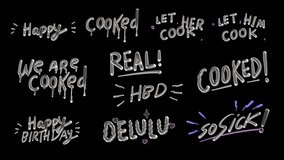 Happy
COOKED
LET HER
COOK
LET HIM
COOK
WE ARE
COOKED
REAL!
HBD
COOKED!
Happy
BIRTHDAY
DELULU
SO SICK!